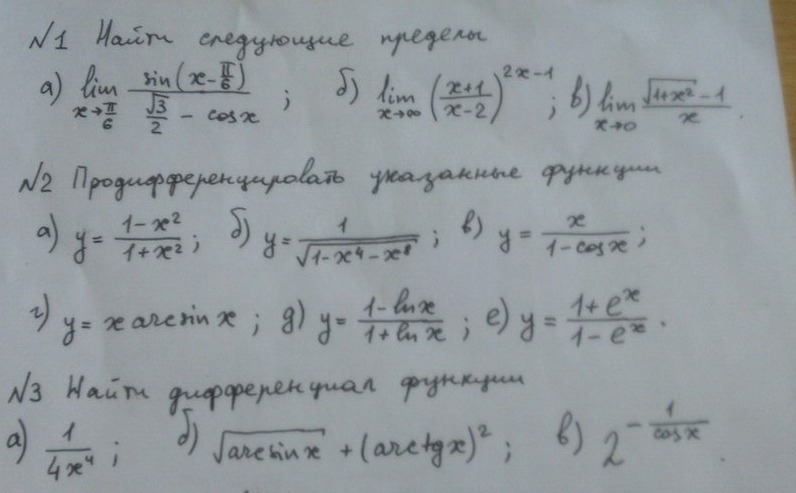 №1 Найти следующие пределы
а) lim x→π/6 sin(x-π/6)/(√3/2 - cosx) ; б) lim x→∞ ((x+1)/(x-2))^(2x-1) ; в) lim x→0 (√(1+x²) -1)/x .
№2 Продифференцировать указанные функции
а) y= (1-x²)/(1+x²) ; б) y= 1/√(1-x⁴-x⁸) ; в) y = x/(1-cosx) ;
г) y= x arcsin x ; д) y= (1-lnx)/(1+lnx) ; е) y = (1+e^x)/(1-e^x) .
№3 Найти дифференциал функции
а) 1/(4x⁴) ; б) √(arcsinx) + (arctgx)² ; в) 2^(-1/cosx) .